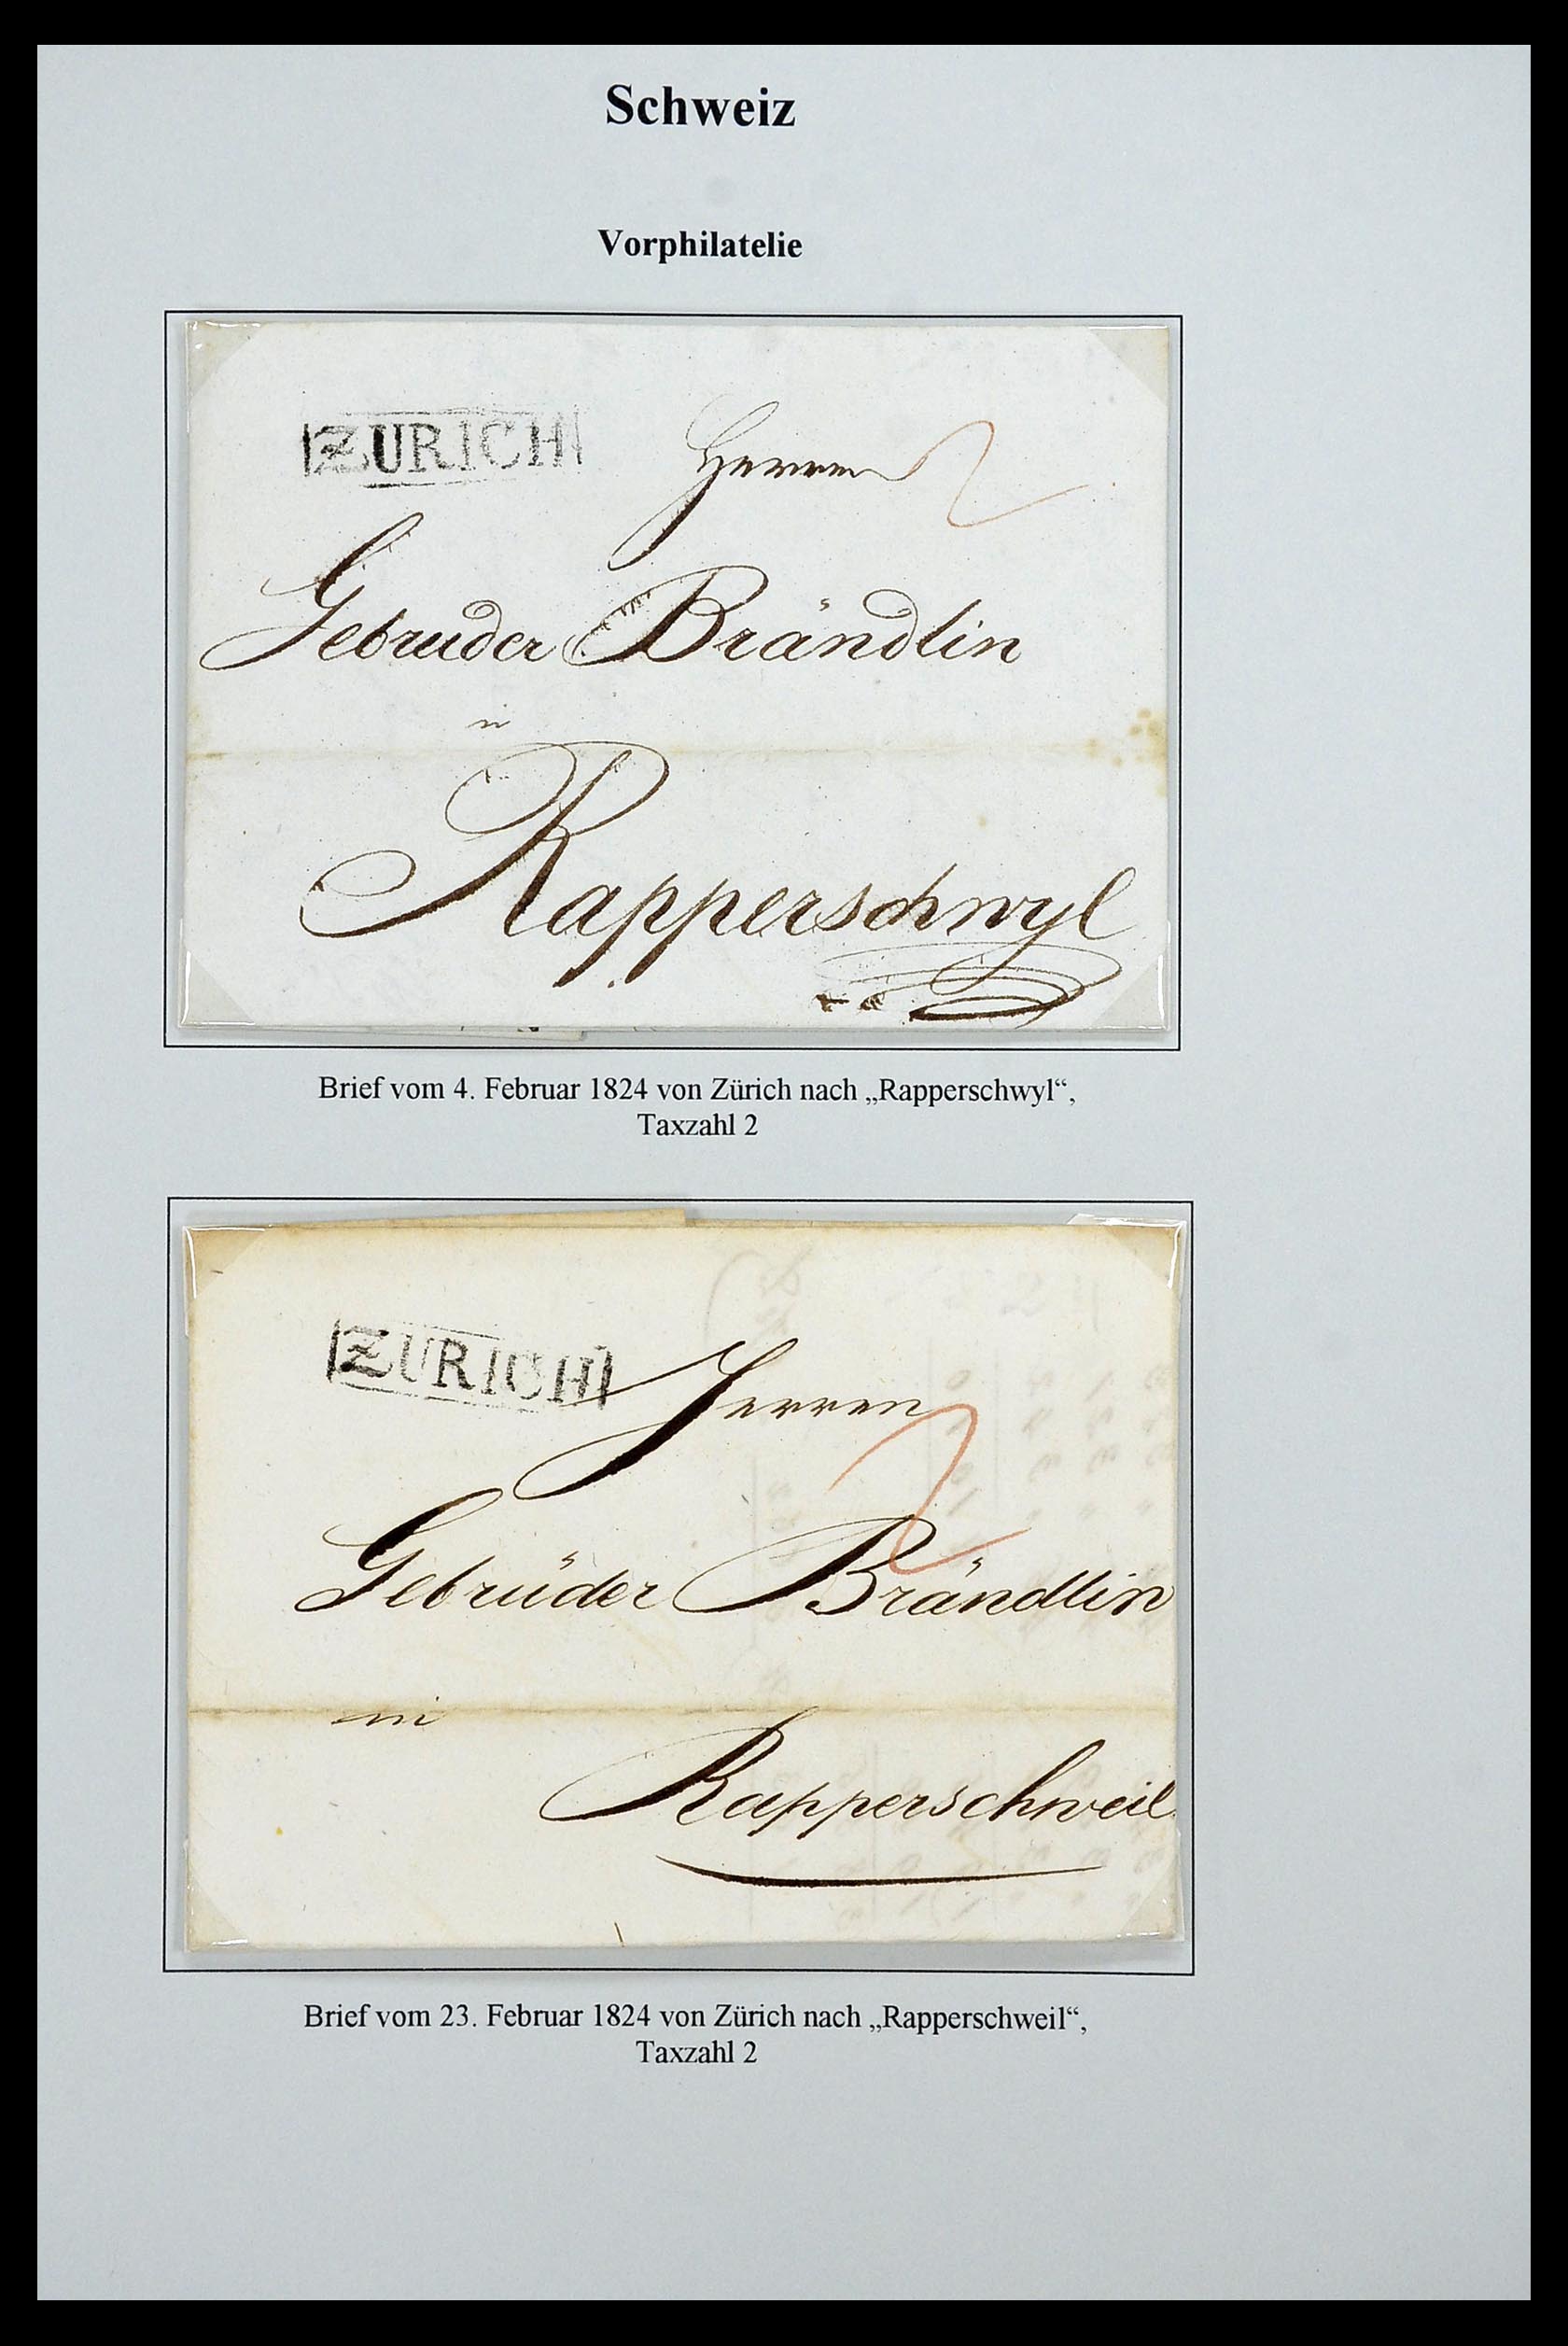 Schweiz
Vorphilatelie
ZURICH
Herren 2
Gebruder Brändlin
in
Rapperschwyl
Brief vom 4. Februar 1824 von Zürich nach „Rapperschwyl“,
Taxzahl 2
ZURICH
Herren
2
Gebrüder Brändlin
in
Rapperschweil
Brief vom 23. Februar 1824 von Zürich nach „Rapperschweil“,
Taxzahl 2